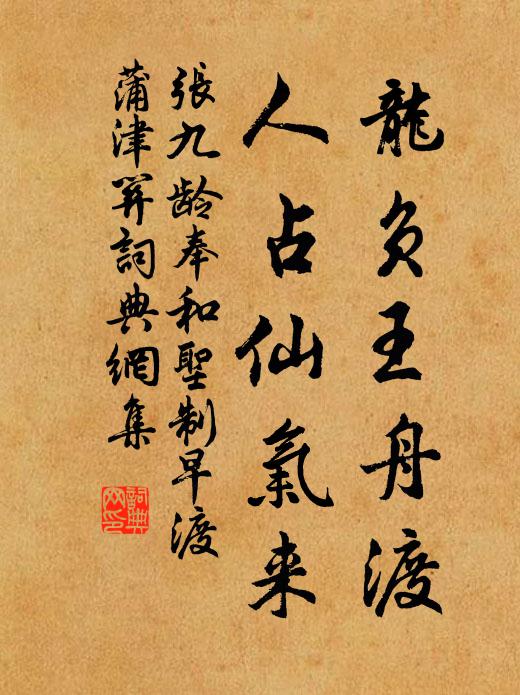 龍負王舟渡
人占仙氣来
張九龄奉和聖制早渡
蒲津関詞典網集
詞典網印